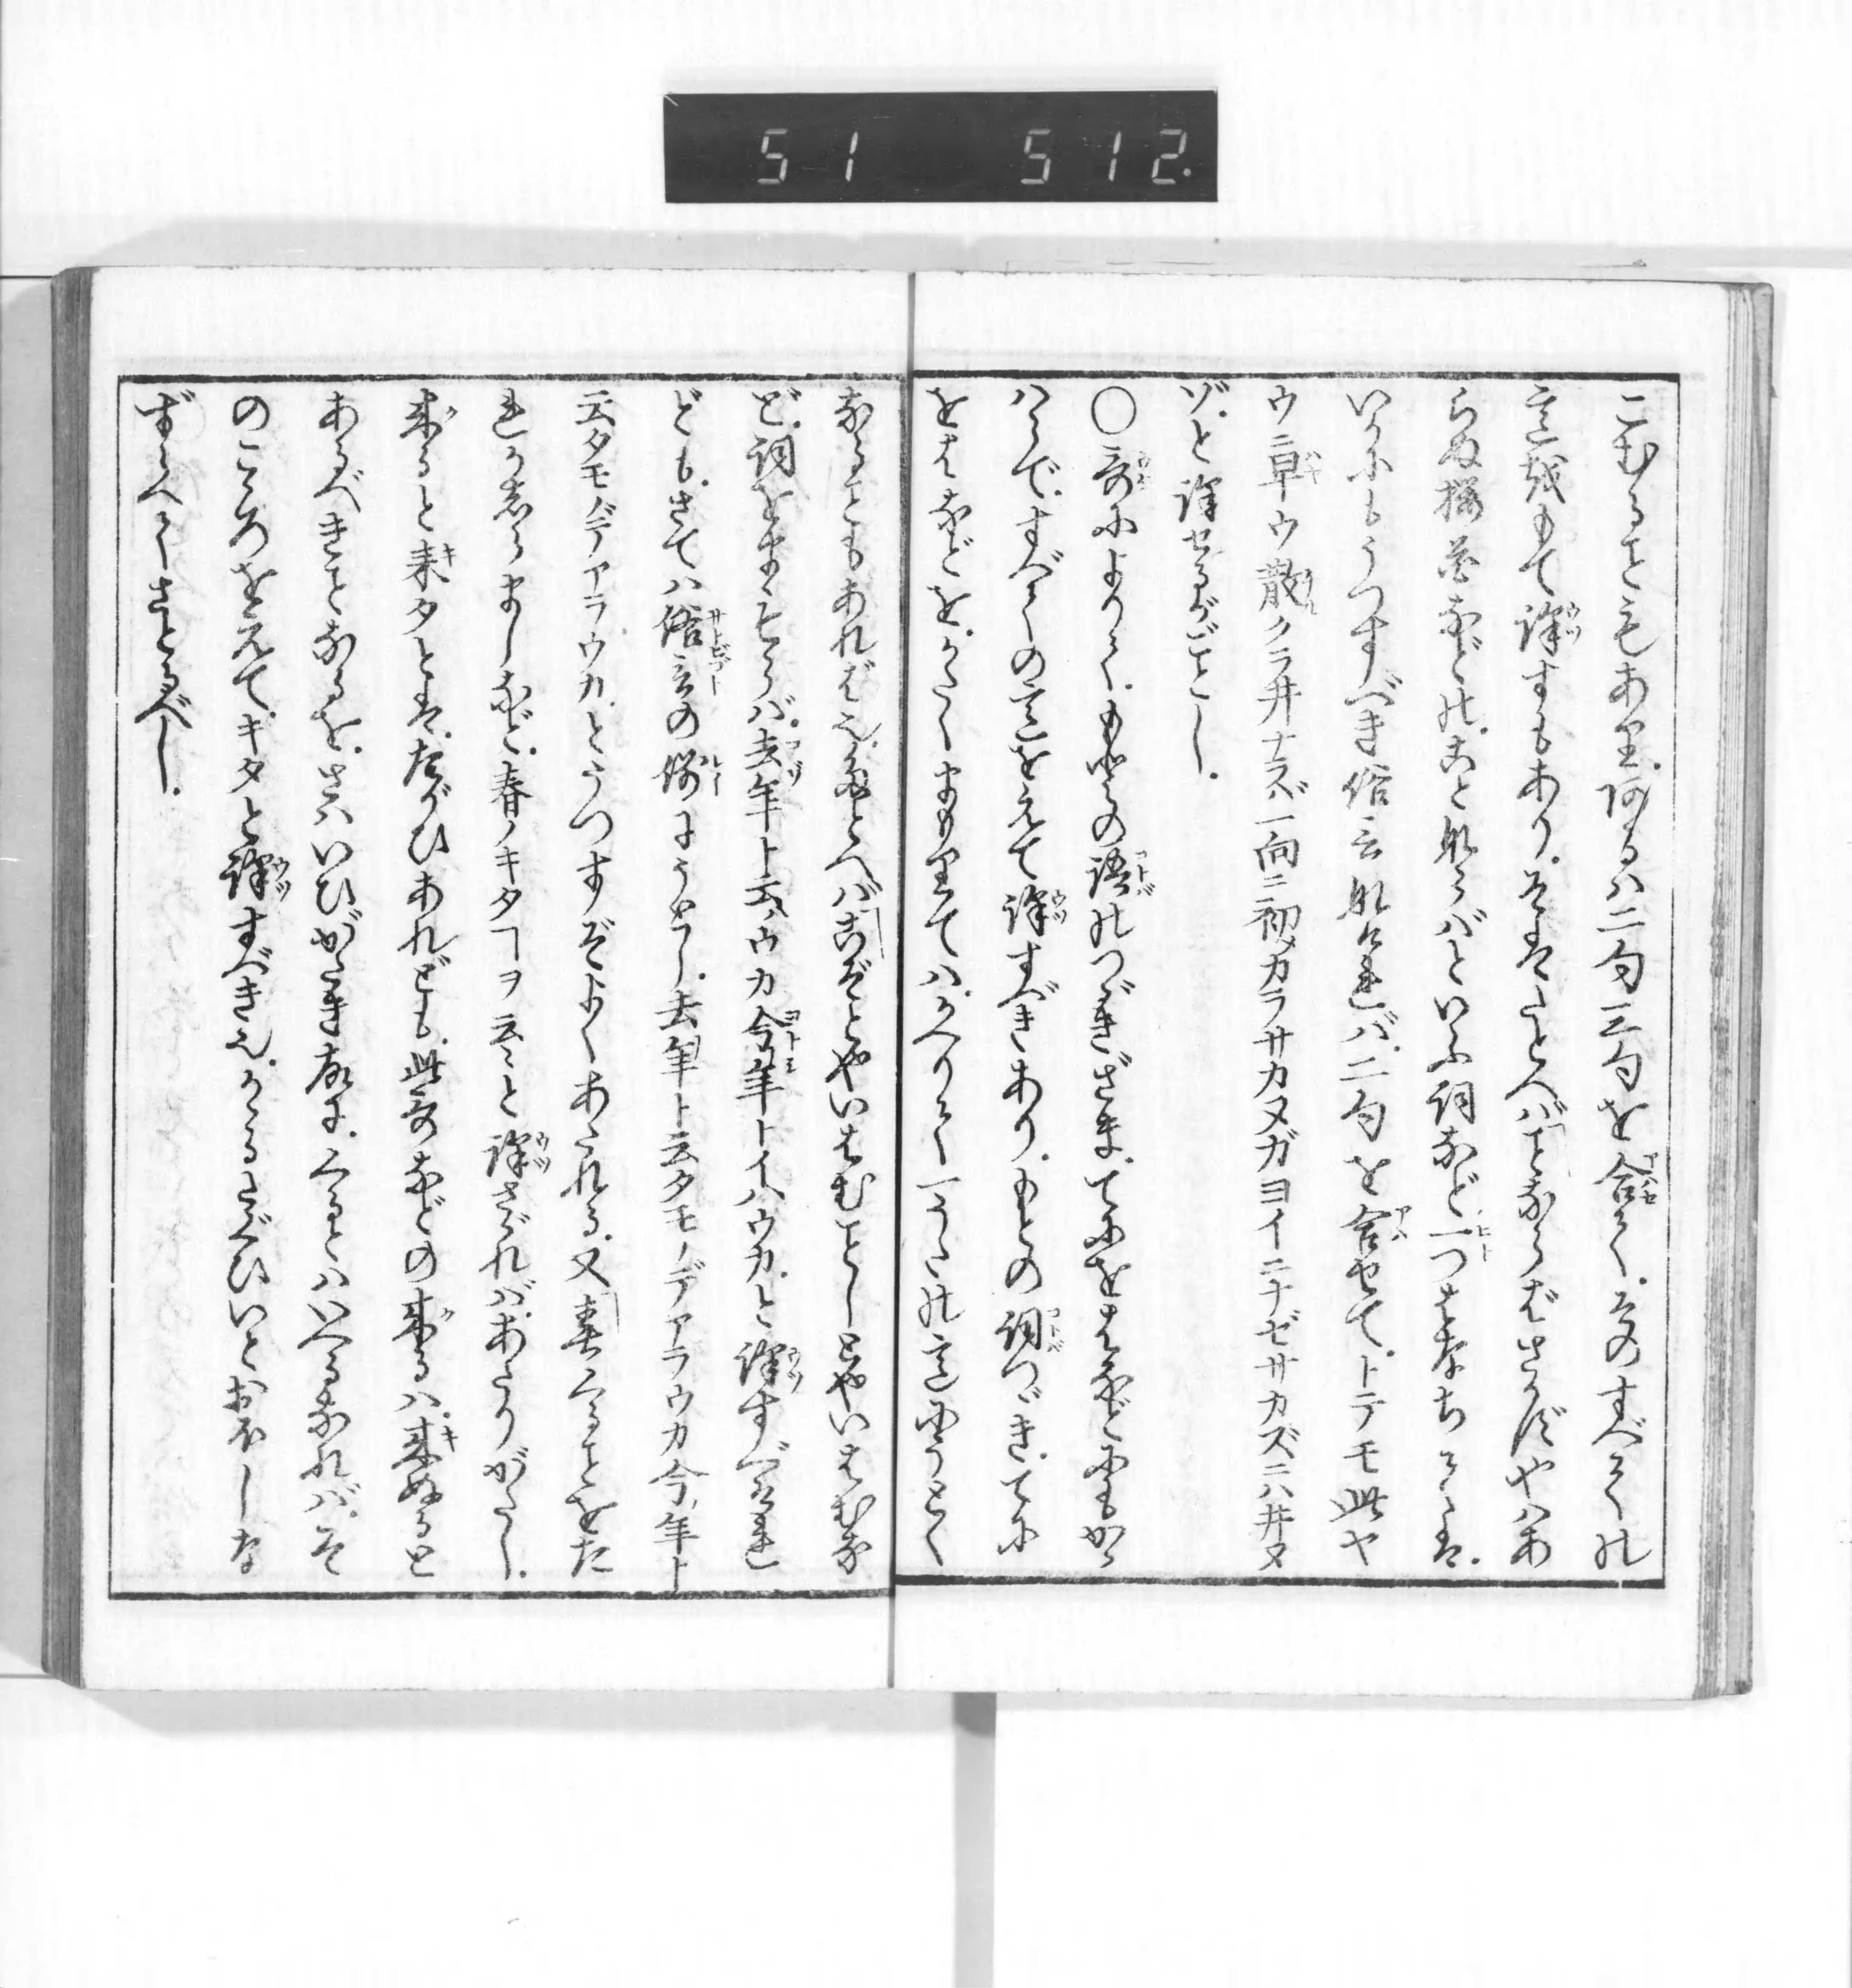 51 512.
こむることもあり。あるハ二句三句を合せて。そのすべての
意をもて譯すもあり。そはたとへば「ことならばさかずやハあ
らぬ櫻花などの。ことならばといふ詞など一つはなちては。
いかにもうつすべき俗言なければ。二句を合せて。トテモ此ヤ
ウニ早ウ散ルクラ井ナラバ一向ニ初メカラサカヌガヨイニナゼサカズニハ井ヌ
ゾ。と譯せるがごとし。
○歌によりて。もとの語のつゞきざま。てにをはなどにもかゝ
ハらで。すべての意をえて譯すべきあり。もとの詞つゞき。てに
をはなどを。かたくまもりてハ。かへりて一うたの意にうとく
なることもあれば也。たとへば「こぞとやいはむことしとやいはむな
ど。詞をまもらバ。去年ト云ハウカ今年トイハウカ。と譯すべけれ
ども。さてハ俗言の例にうとし。去年ト云タモノデアラウカ今年ト
云タモノデアラウカ。とうつすぞよくあたれる。又「春くることをた
れかしらましなど。春ノキタヿヲ云々と譯さゞれバ。あたりがたし。
來ると來タとは。たがひあれども。此歌などの來るハ。來ぬると
あるべきことなるを。さハいひがたき故に。くるとハいへるなれバ。そ
のこゝろをえて。キタと譯すべき也。かゝるたぐひいとおほしな
ずらへてさとるべし。